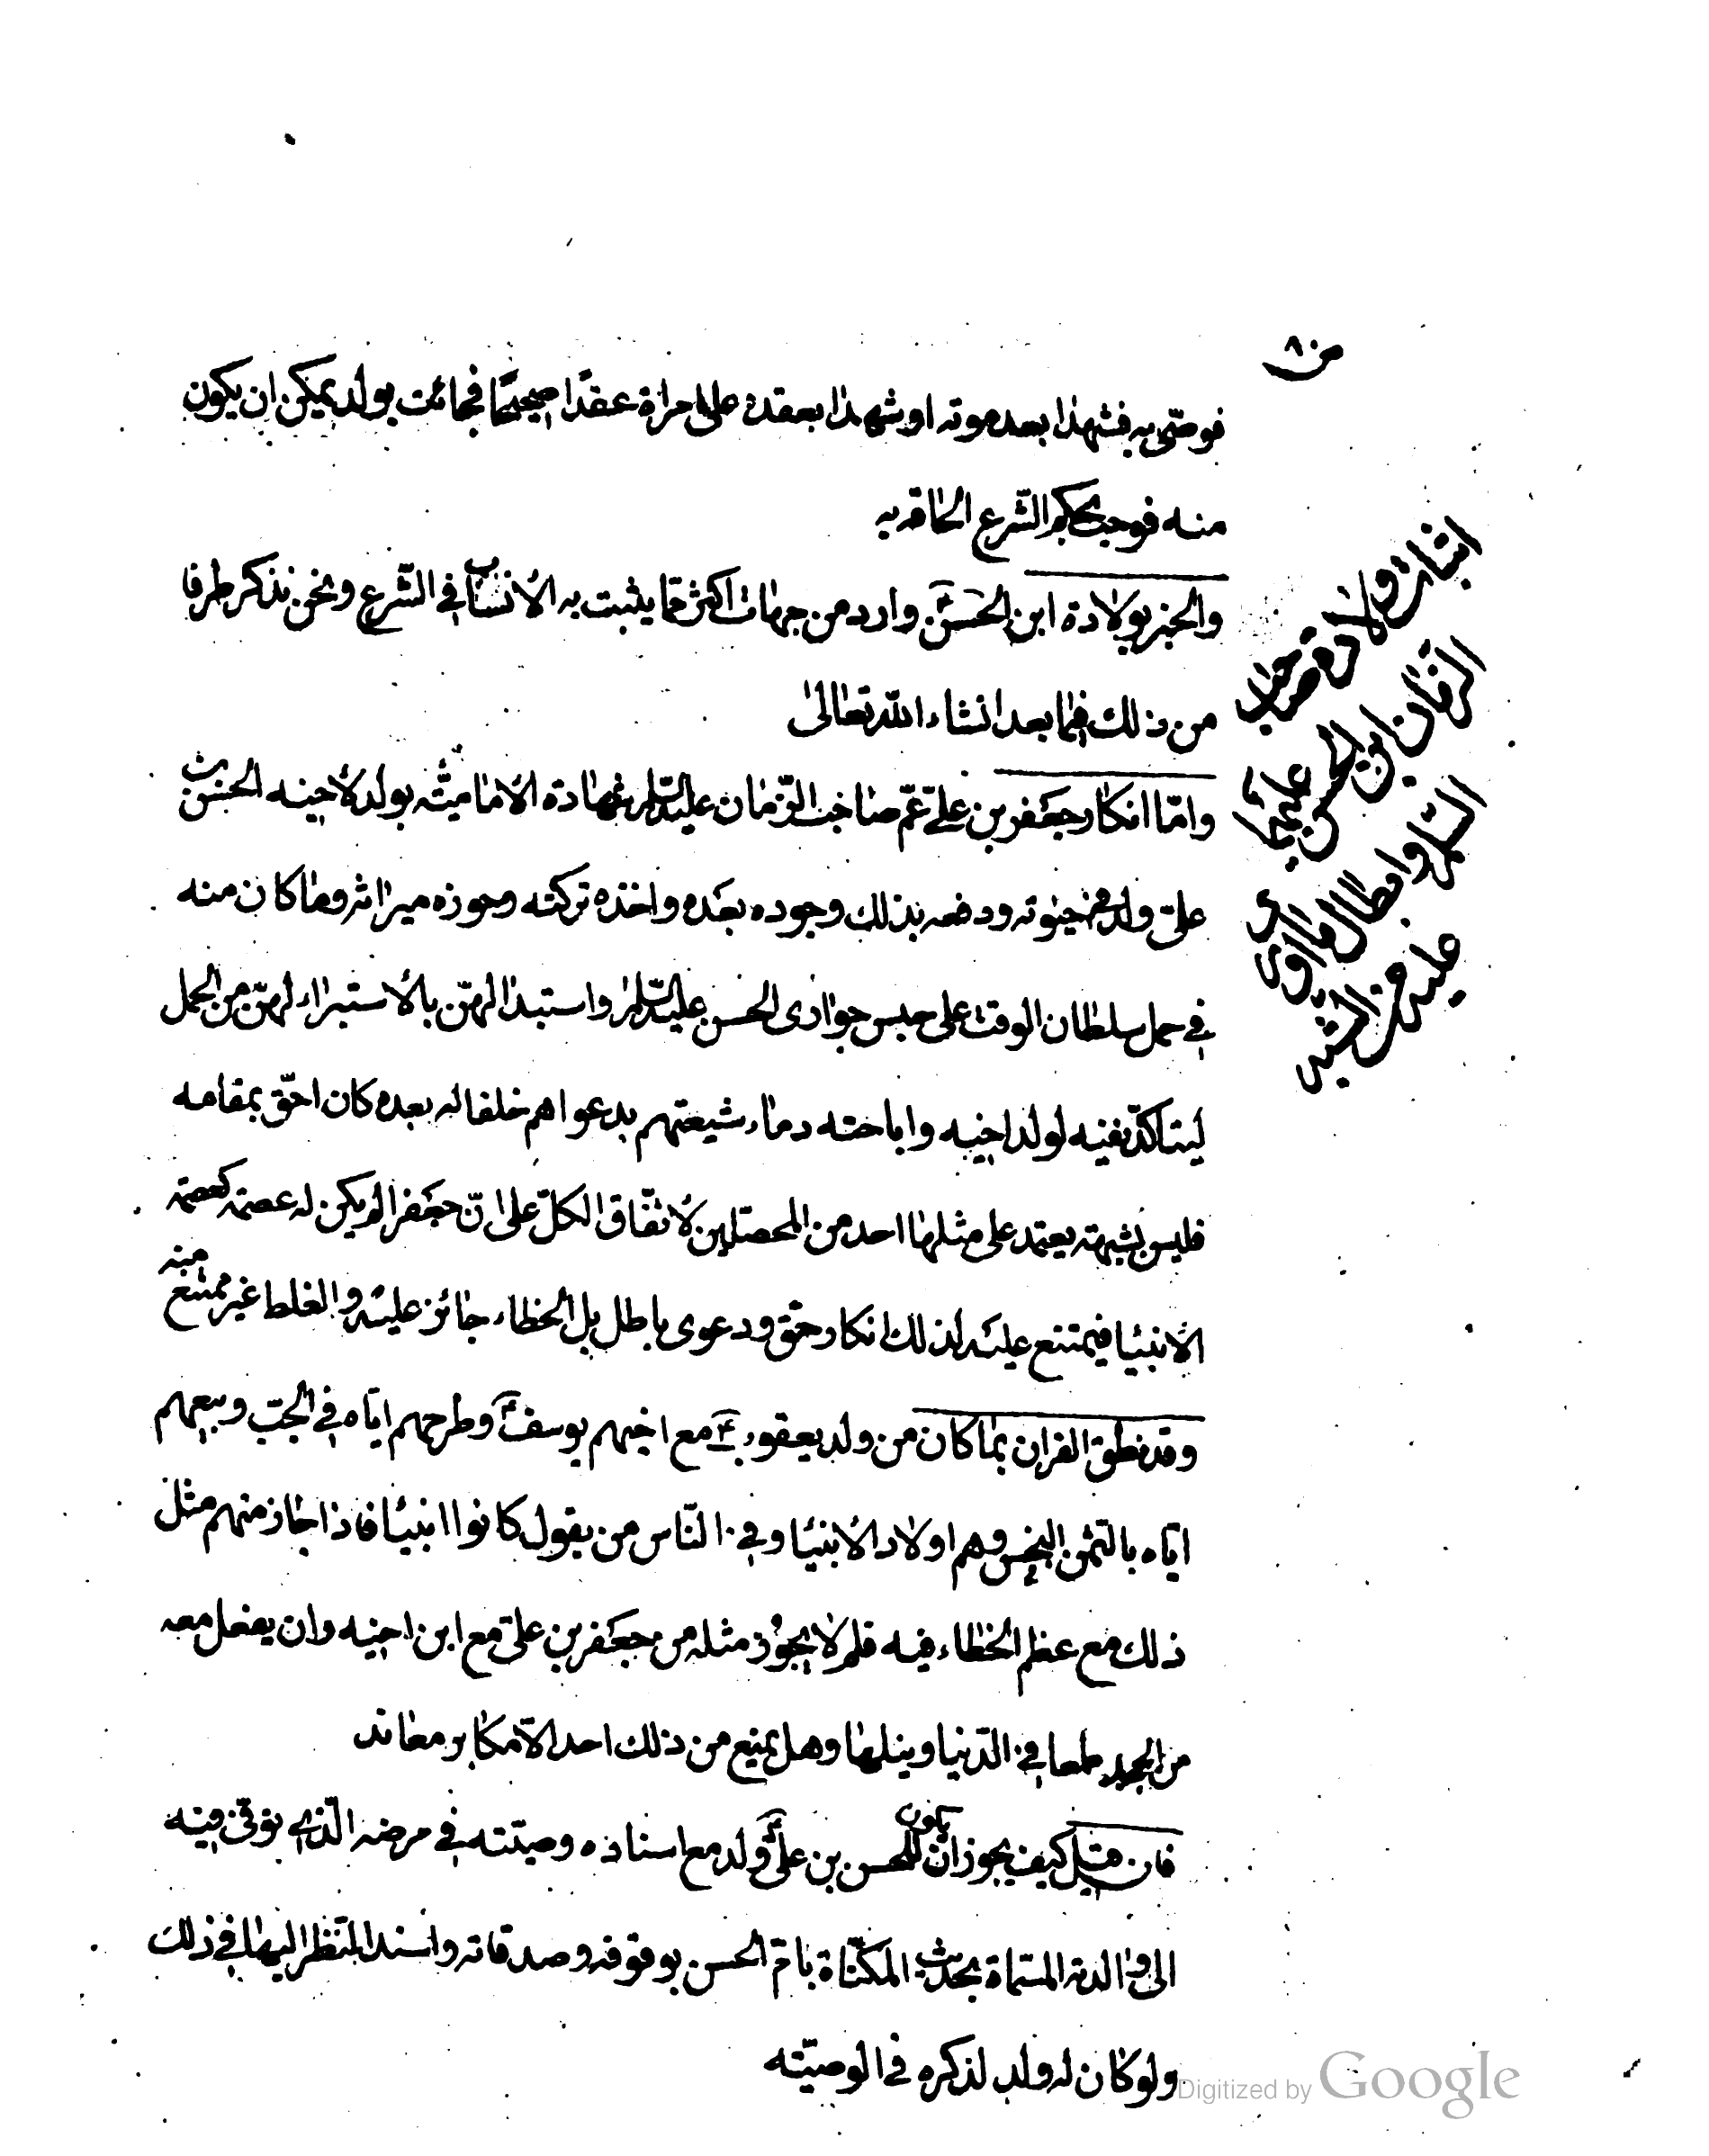 ص ٨
فوصّى به فشهدا بعد موته او شهدا بعقده على امراة عقدًا صحيحًا فجائت بولد يمكن ان يكون
منه فوجب بحكم الشّرع الحاقه به
والخبر بولادة ابن الحسن ع وارد من جهات اكثر ممّا يثبت به الأنساب في الشّرع ونحن نذكر طرفا
من ذلك فيما بعد انشاء اللّه تعالى
وامّا انكار جعفر بن علي عمّ صاحب الزّمان عليه السّلم شهادة الاماميّة بولد لأخيه الحسن بن
علي ولد في حيوته ودفعه بذلك وجوده بعده واخذه تركته وحوزه ميراثه وما كان منه
في حمل سلطان الوقت على حبس جوارى الحسن عليه السّلم واستبدالهنّ بالأستبراء لهنّ من الحمل
ليتاكّد نفيه لولد اخيه واباحته دماء شيعتهم بدعواهم خلفا له بعده كان احقّ بمقامه
فليس بشبهة يعتمد على مثلها احد من المحصّلين لاتّفاق الكلّ على انّ جعفرا لم يكن له عصمة كعصمة
الانبيا فيمتنع عليه لذلك انكار حقّ ودعوى باطل بل الخطاء جائز عليه والغلط غير ممتنع منه
وقد نطق القران بما كان من ولد يعقوب ع مع اخيهم يوسف ع وطرحهم ايّاه في الجبّ وبيعهم
ايّاه بالثّمن البخس وهم اولاد الأنبيا وفي النّاس من يقول كانوا انبيا فاذا جاز منهم مثل
ذلك مع عظم الخطاء فيه فلم لا يجوز مثله من جعفر بن علي مع ابن اخيه وان يفعل معه
من الجحد طمعا في الدّنيا ونيلها وهل يمنع من ذلك احد الّا مكابر معاند
فان قيل كيف يجوز ان يكون للحسن بن علي ع ولد مع اسناده وصيّته في مرضه الّذي توفّى فيه
الى والدته المسمّاة بحديث المكنّاة بامّ الحسن بوقوفه وصدقاته واسند النّظر اليها في ذلك
ولو كان له ولد لذكره في الوصيّة
اثبات ولادة حضرت صاحب
الزمان ابن الحسن عليهما
السّلم وابطال
Digitized by Google